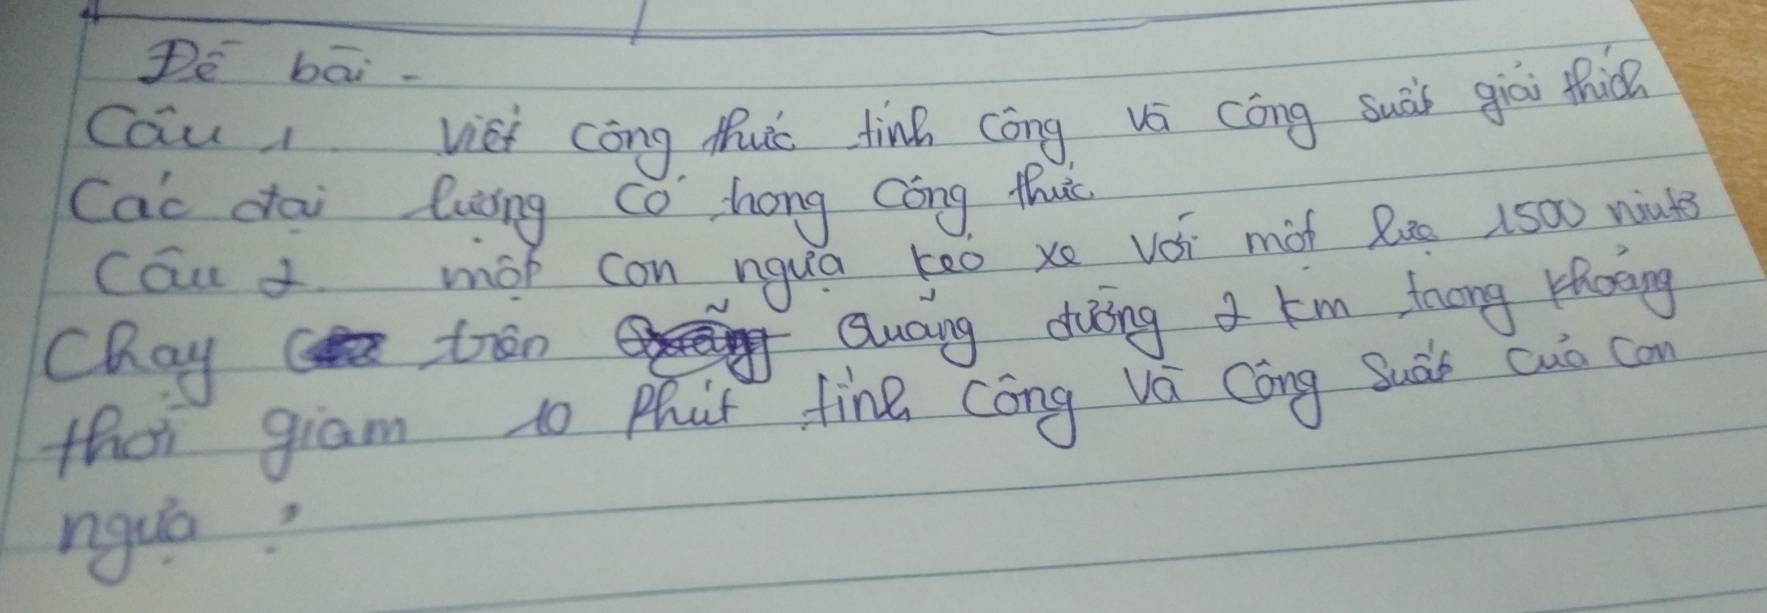 Đề bài -
Câu 1 Viết công thức tính công và công suất giải thích
Các đại lượng có trong công thức
Câu 2 một con ngựa kéo xe với một lực 1500 niutơ
Chạy trên Quãng đường 2 km trong khoảng
thời giam 10 phút tính công và công suất của con
ngựa ?